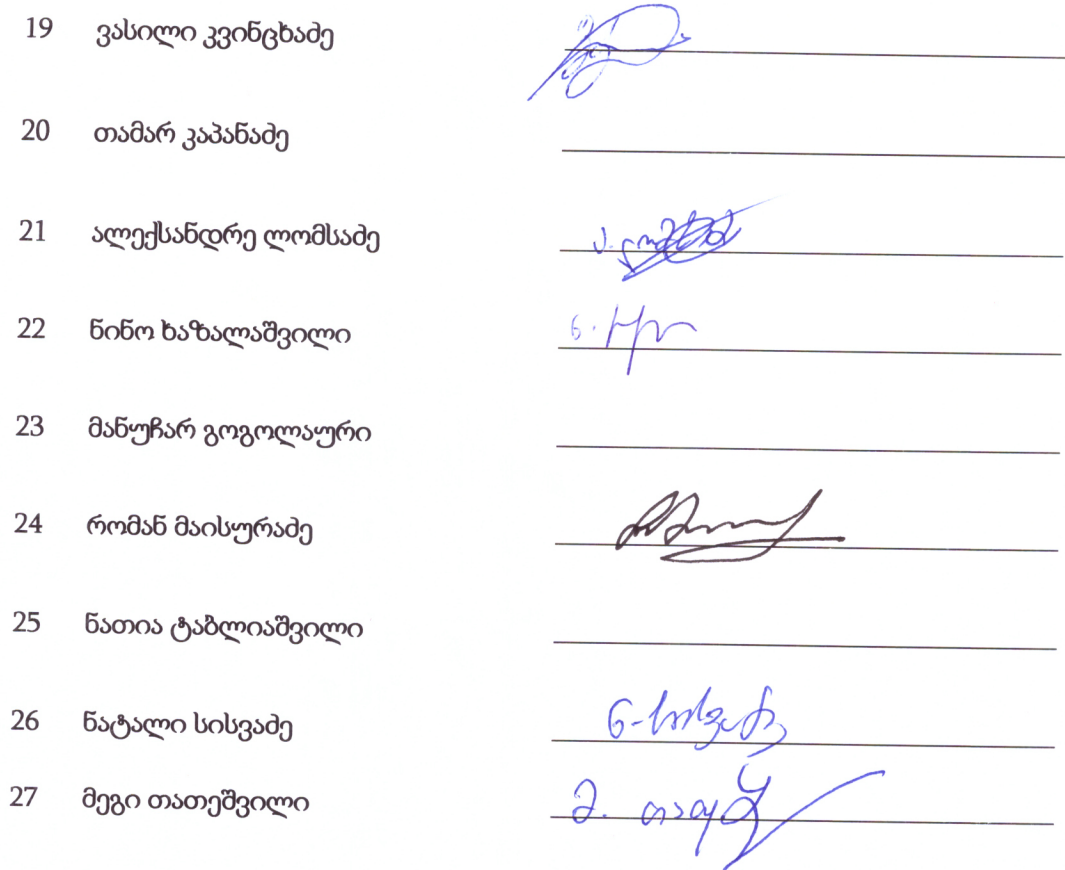 19 ვასილი კვინცხაძე
20 თამარ კაპანაძე
21 ალექსანდრე ლომსაძე
22 ნინო ხაზალაშვილი
23 მანუჩარ გოგოლაური
24 რომან მაისურაძე
25 ნათია ტაბლიაშვილი
26 ნატალი სისვაძე
27 მეგი თათეშვილი